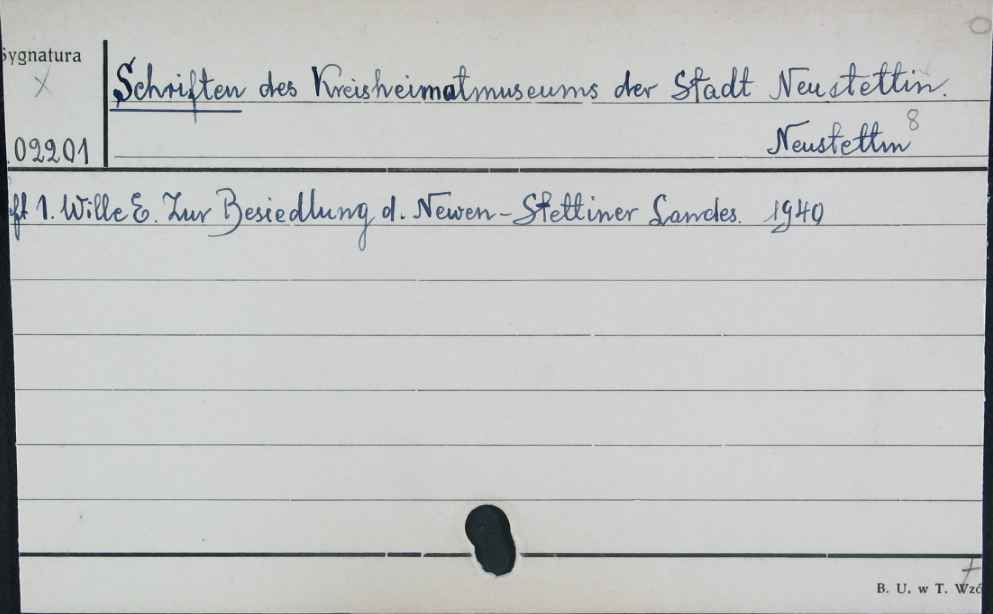 Sygnatura
Schriften des Kreisheimatmuseums der Stadt Neustettin.
Neustettin 8
02201
1. Wille E. Zur Besiedlung d. Newen-Stettiner Landes. 1940
B. U. w T.